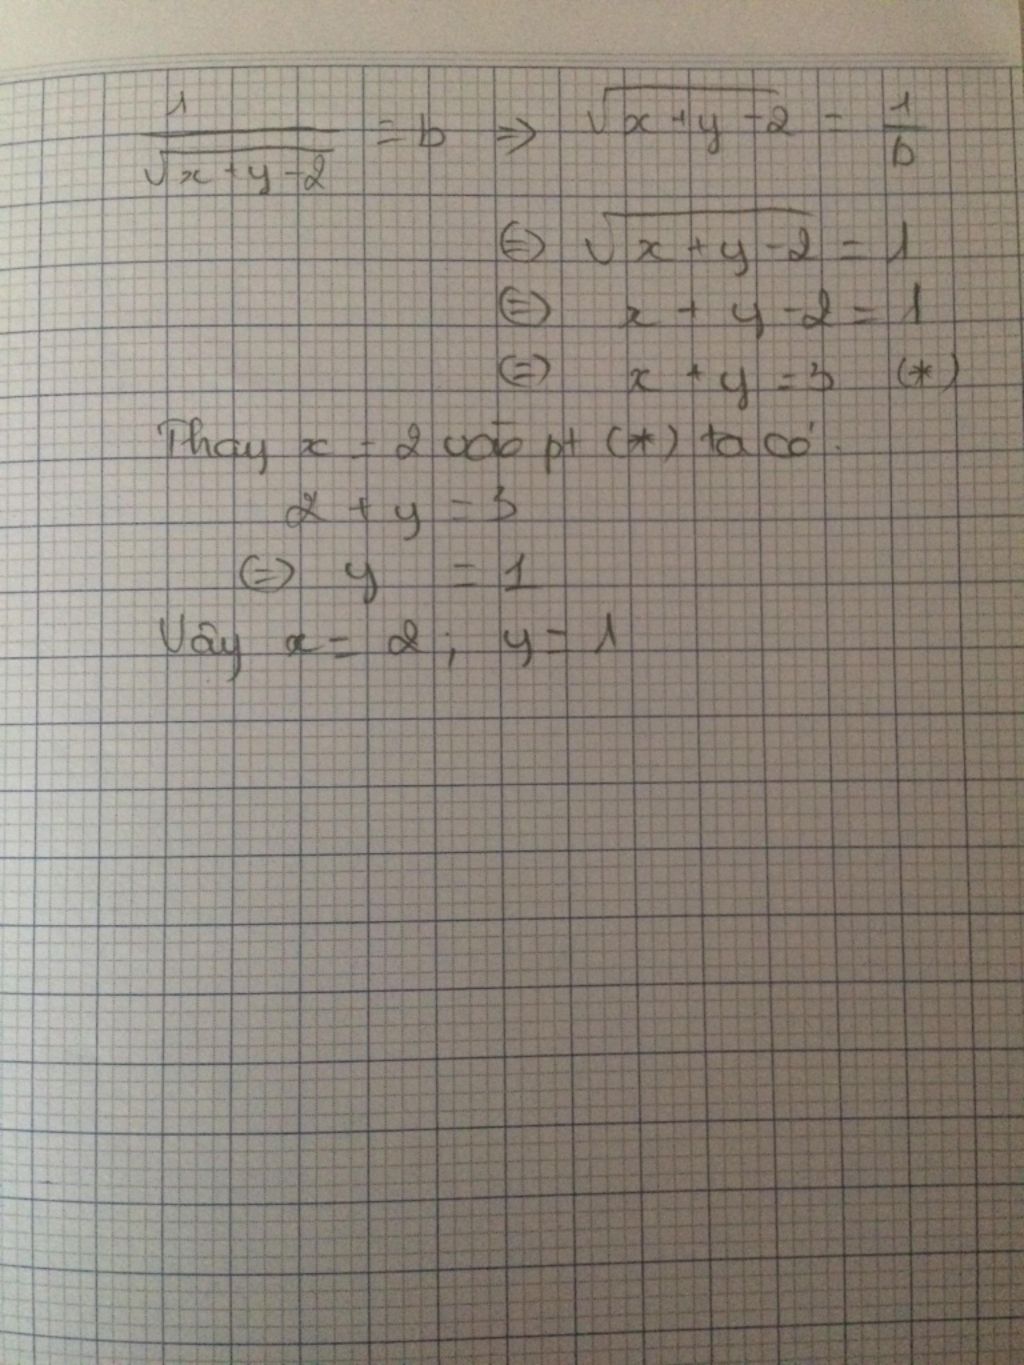 1/√(x+y-2) = b ⇒ √(x+y-2) = 1/b
⇔ √(x+y-2) = 1
⇔ x + y - 2 = 1
⇔ x + y = 3 (*)
Thay x = 2 vào pt (*) ta có:
2 + y = 3
⇔ y = 1
Vậy x = 2 ; y = 1